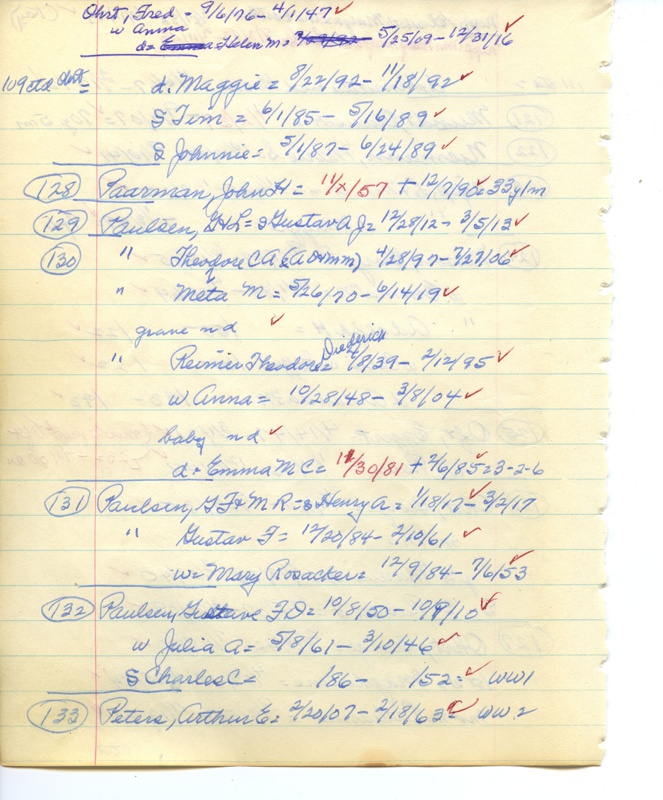 Ohrt, Fred - 9/6/76 - 4/1/47 ✓
w Anna
d = Emma Helen M = 5/25/69 - 12/31/16 ✓
109 ctd Ohrt = d. Maggie = 8/22/92 - 11/18/92 ✓
S Tem = 6/1/85 - 5/16/89 ✓
S Johnnie = 5/1/87 - 6/24/89 ✓
128 Paarman, John H = 11/x/57 + 12/7/90 ✓ = 33y/m
129 Paulsen, G H L = s Gustav A J = 12/28/12 - 3/5/13 ✓
130 " Theodore C A & (A O H mm) 4/28/97 - 7/27/06 ✓
" Meta M = 5/26/70 - 6/14/19 ✓
grave n d ✓
" Reimer Theodore Diederich = 4/8/39 - 2/12/95 ✓
w Anna = 10/28/48 - 3/8/04 ✓
baby n d ✓
d = Emma M C = 11/30/81 + 2/6/85 ✓ = 3-2-6
131 Paulsen, G F & M R = s Henry A = 1/18/17 - 3/2/17 ✓
" Gustav F = 12/20/84 - 2/10/61 ✓
w = Mary Rosacker = 12/9/84 - 7/6/53 ✓
132 Paulsen, Gustave F D = 10/8/50 - 10/9/10 ✓
w Julia A = 5/8/61 - 3/10/46 ✓
S Charles C = /86 - /52 = ✓ WW1
133 Peters, Arthur E = 2/20/07 - 2/18/63 = ✓ WW 2